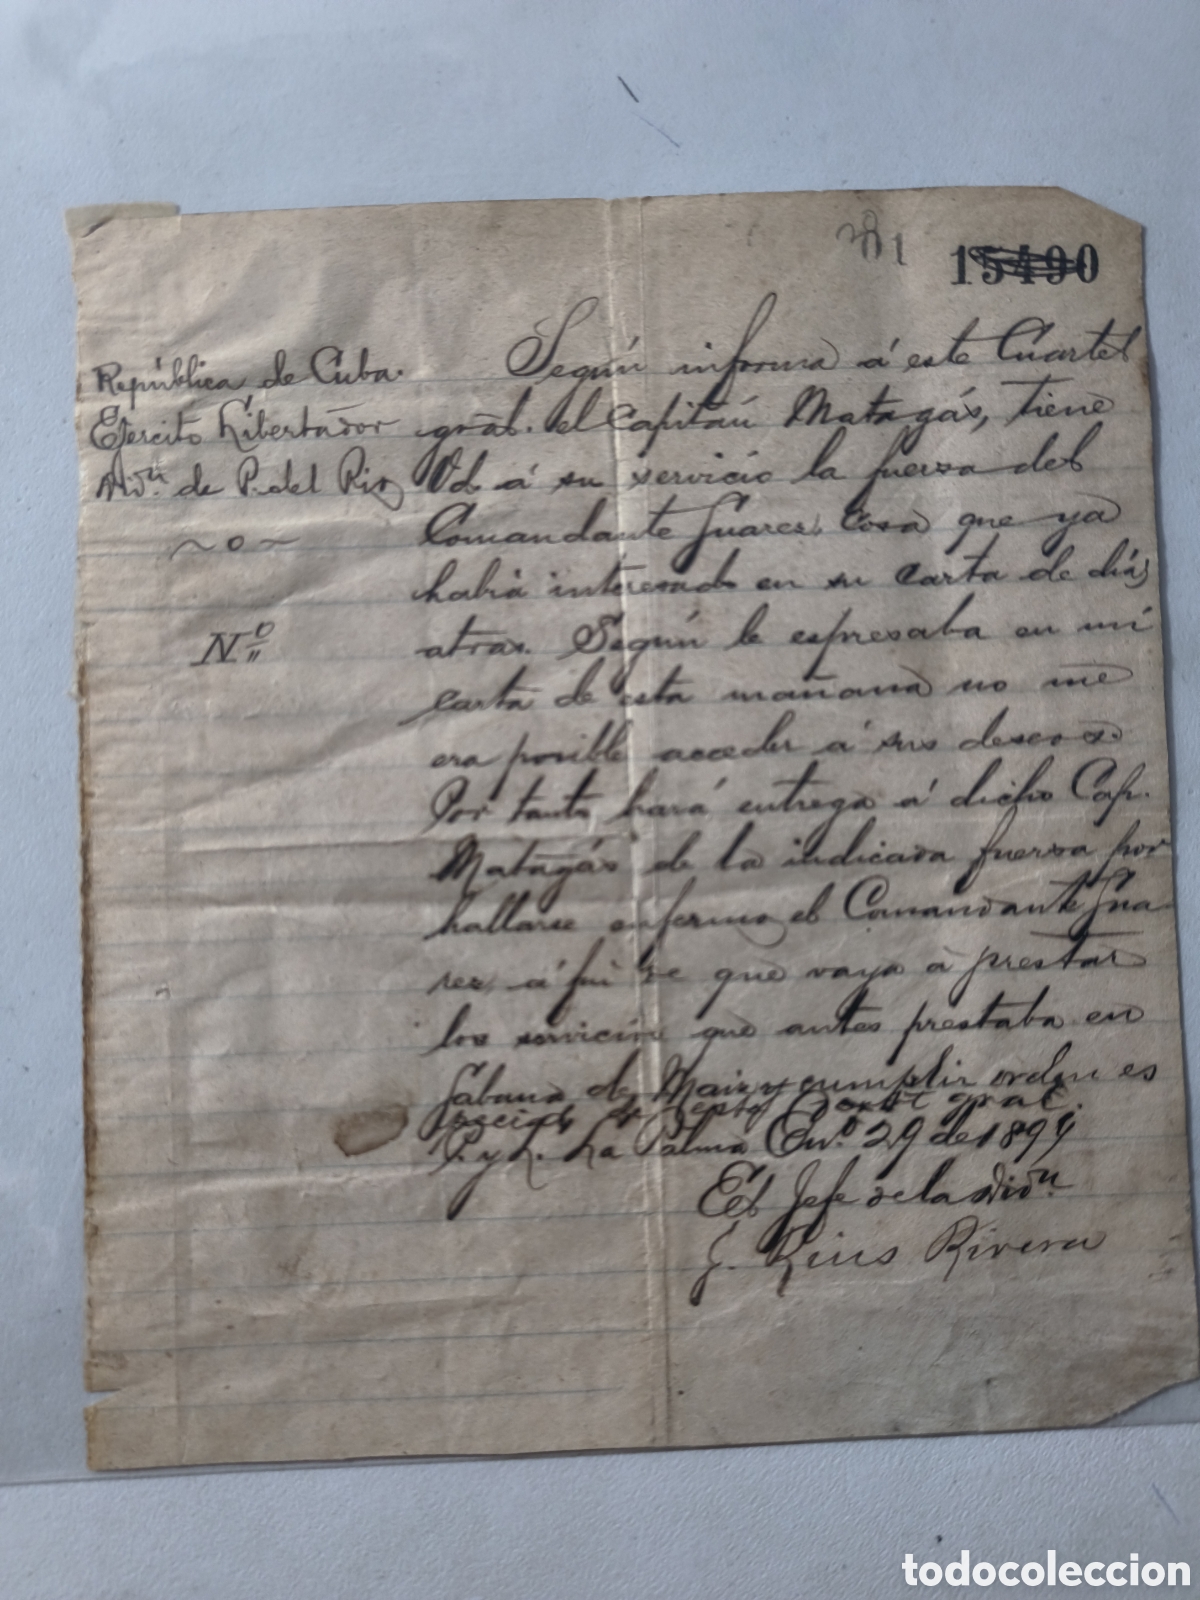 281
15490
República de Cuba.
Ejército Libertador
Divn. de P. del Rio
~o~
Nº
Según informa á este Cuartel
gral. el Capitán Matagás, tiene
Vd. á su servicio la fuerza del
Comandante Suarez, cosa que ya
había interesado en su carta de dias
atras. Según le espresaba en mi
carta de esta mañana no me
era posible acceder á sus deseos.
Por tanto hará entrega á dicho Cap.
Matagás de la indicada fuerza por
hallarse enfermo el Comandante Sua
rez, á fin de que vaya a prestar
los servicios que antes prestaba en
Sabana de Maiz y cumplir orden es
pecial de este Cuartel gral.
P. y L. La Palma En.º 29 de 1897
El Jefe de la Divn.
J. Rius Rivera
todocoleccion